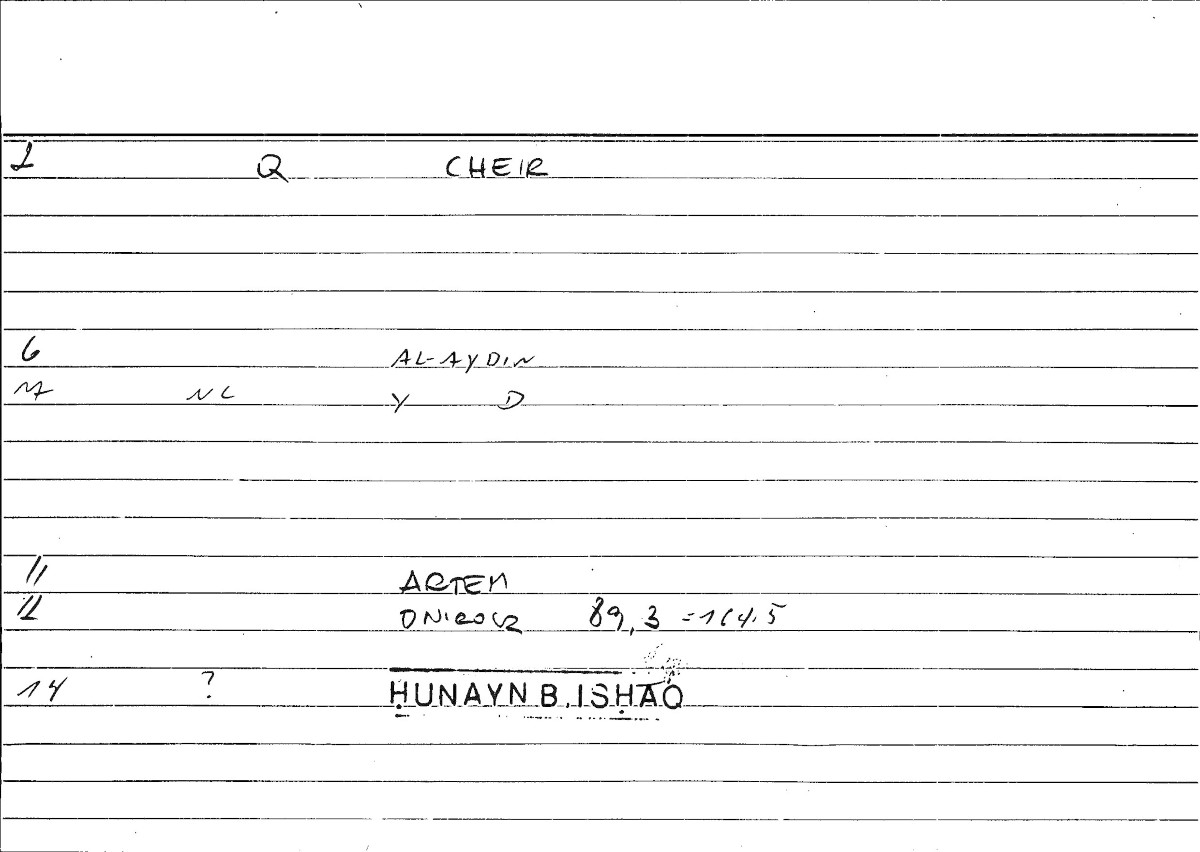 1 Q CHEIR
6 AL-AYDIN
NC Y D
11 ARTEM
12 ONIROCR 89,3 = 164.5
14 ? ḤUNAYN B. ISḤĀQ